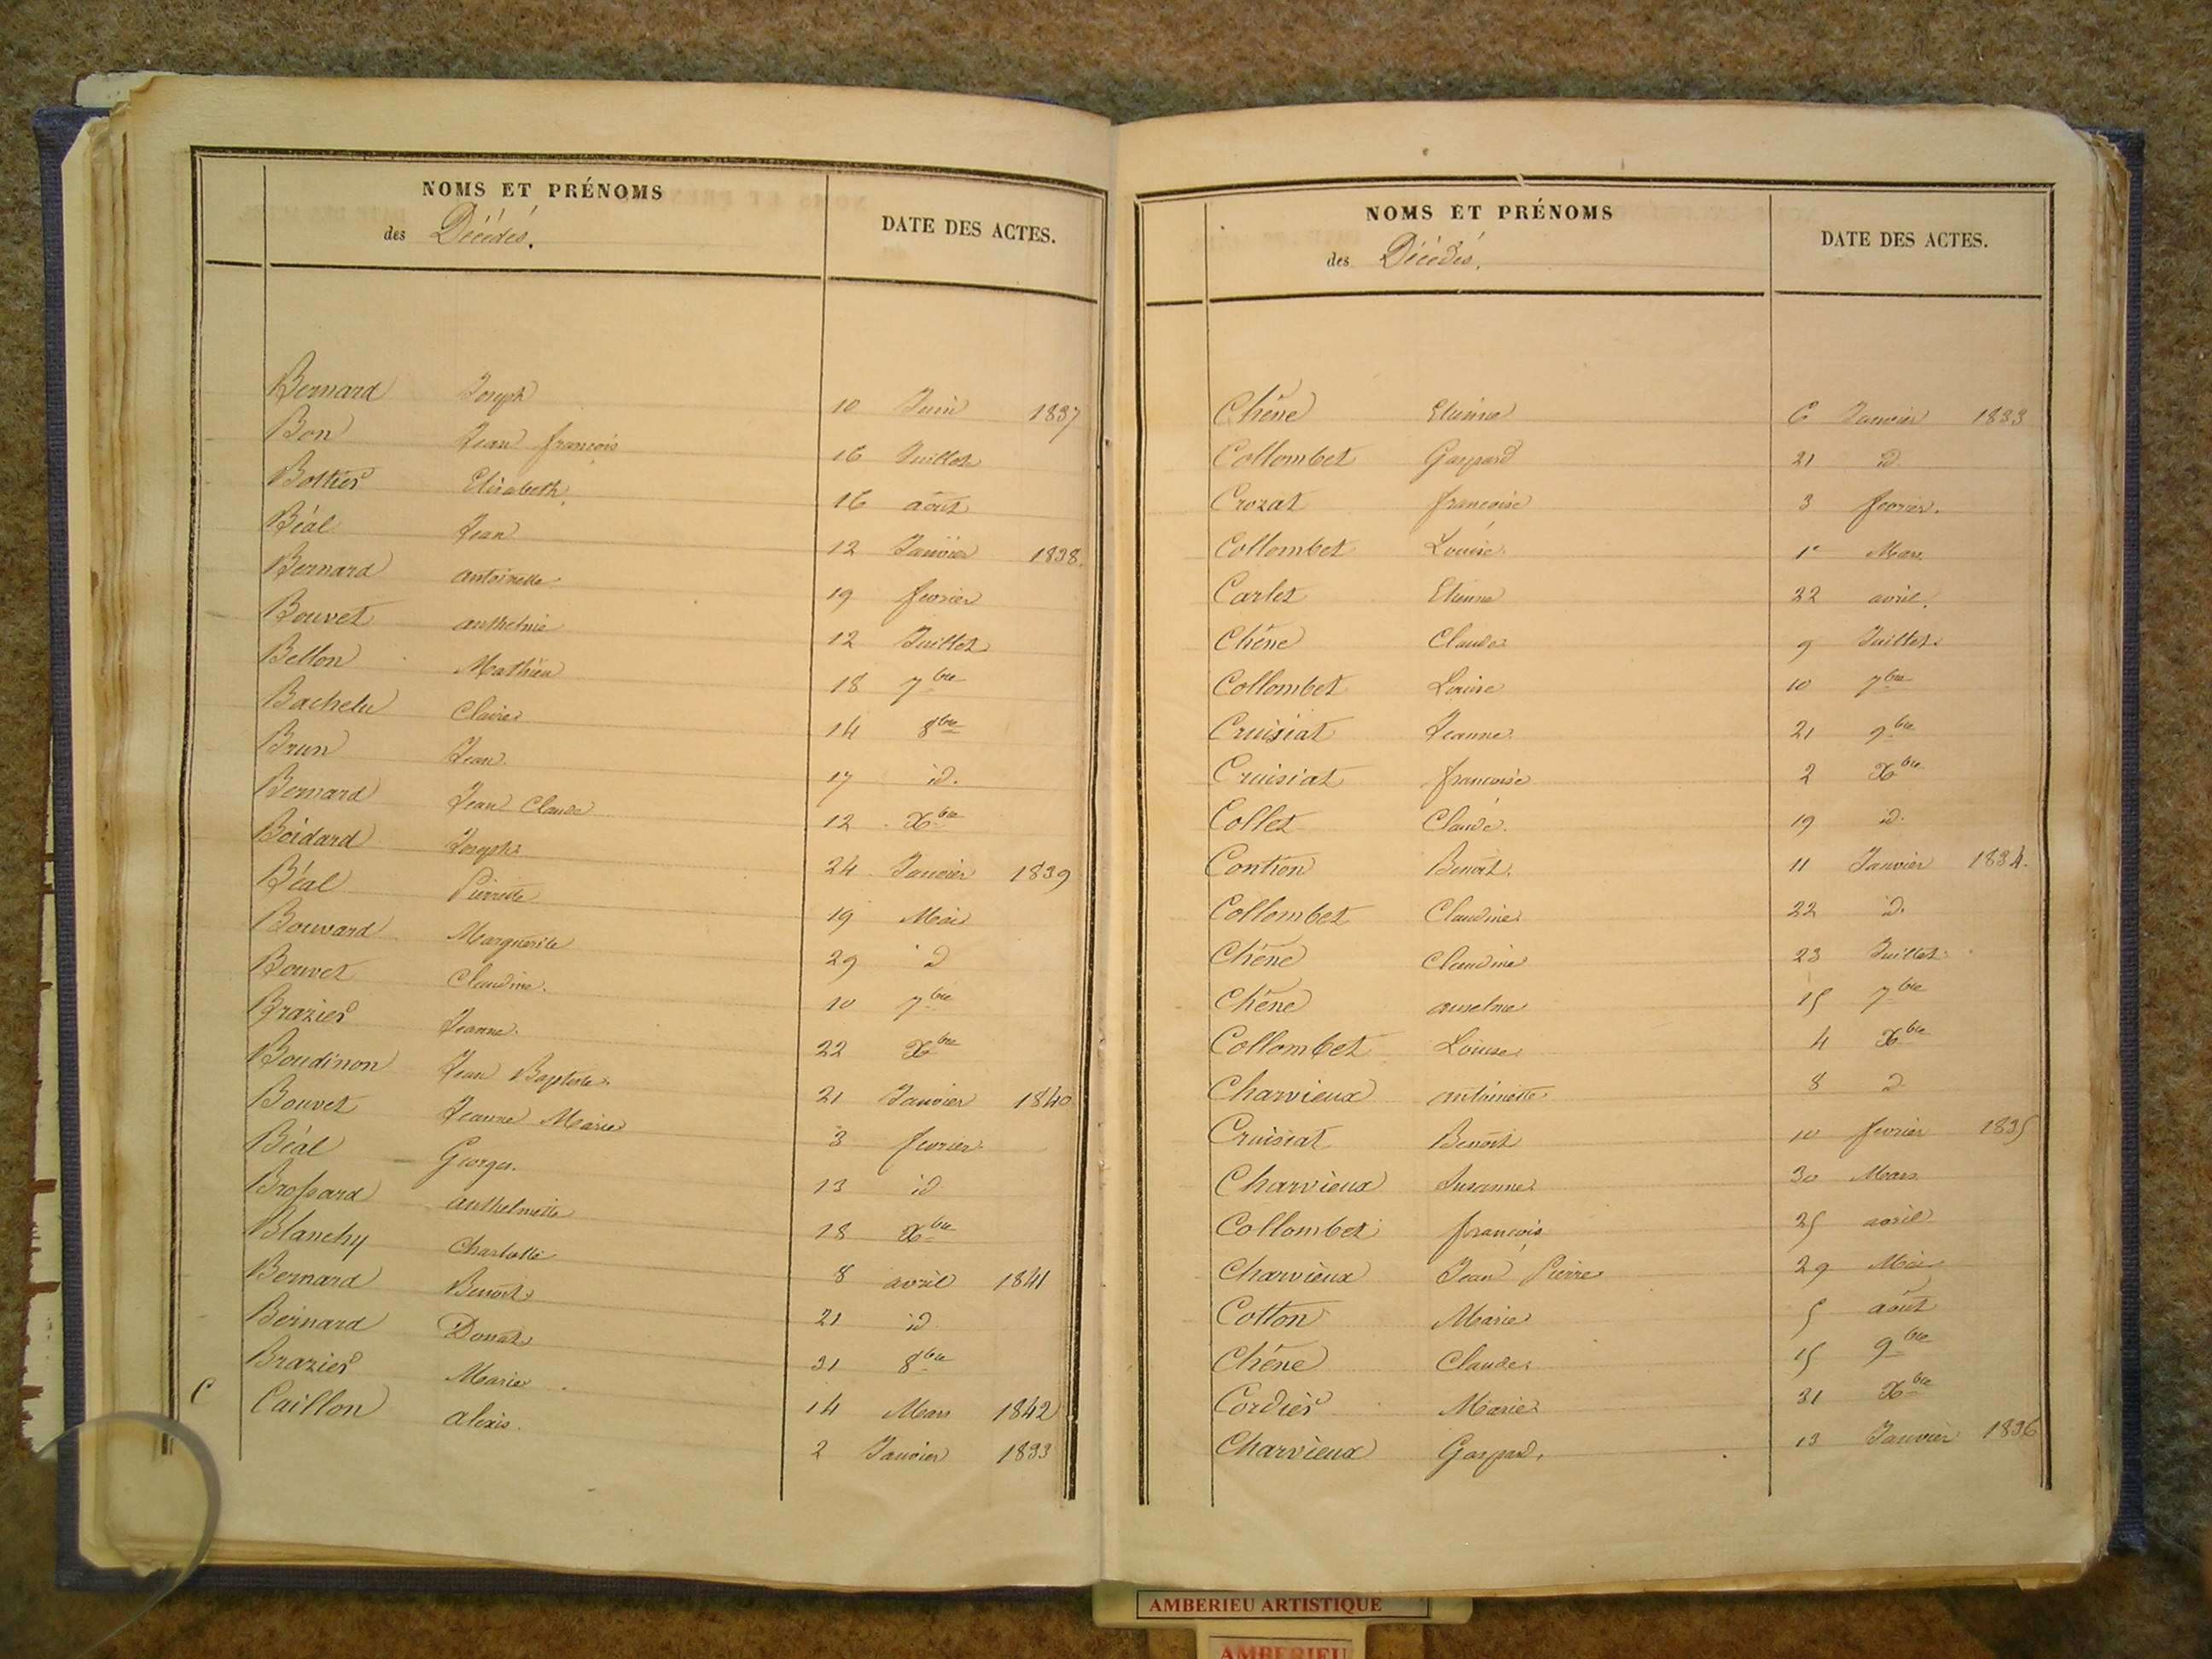 NOMS ET PRÉNOMS
des Décédés.
DATE DES ACTES.
Bernard Joseph 10 Juin 1837
Bon Jean françois 16 Juillet
Bottier Elisabeth 16 août
Béal Jean 12 Janvier 1838.
Bernard antoinette 19 fevrier
Bouvet anthelmie 12 Juillet
Bellon Mathieu 18 7bre
Bachelu Claire 14 8bre
Brun Jean 17 id.
Bernard Jean Claude 12 Xbre
Boidard Joseph 24 Janvier 1839
Béal Pierrette 19 Mai
Bouvard Marguerite 29 id
Bouvet Claudine. 10 7bre
Brazier Jeanne. 22 Xbre
Boudinon Jean Baptiste. 21 Janvier 1840
Bouvet Jeanne Marie 3 fevrier
Béal Georges. 13 id
Brossard anthelmette 18 Xbre
Blanchy Charlotte 8 avril 1841
Bernard Benoit 21 id
Bernard Donat 31 8bre
Brazier Marie 14 Mars 1842
C Caillon alexis. 2 Janvier 1833
NOMS ET PRÉNOMS
des Décédés.
DATE DES ACTES.
Chêne Etienne 6 Janvier 1833
Collombet Gaspard 21 id
Crozat françoise 3 fevrier.
Collombet Louise. 1er Mars
Carlet Etienne 22 avril.
Chêne Claude 9 Juillet.
Collombet Louise 10 7bre
Cruisiat Jeanne 21 9bre
Cruisiat françoise 2 Xbre
Collet Claude. 19 id.
Contion Benoit. 11 Janvier 1834.
Collombet Claudine 22 id.
Chêne Claudine 23 Juillet
Chêne anselme 15 7bre
Collombet Louise 4 Xbre
Charvieux antoinette 8 id
Cruisiat Benoit 10 fevrier 1835
Charvieux Susanne 30 Mars
Collombet françois 25 avril
Charvieux Jean Pierre 29 Mai
Cotton Marie 5 août
Chêne Claude 15 9bre
Cordier Marie 31 Xbre
Charvieux Gaspard. 13 Janvier 1836
AMBERIEU ARTISTIQUE
AMBERIEU